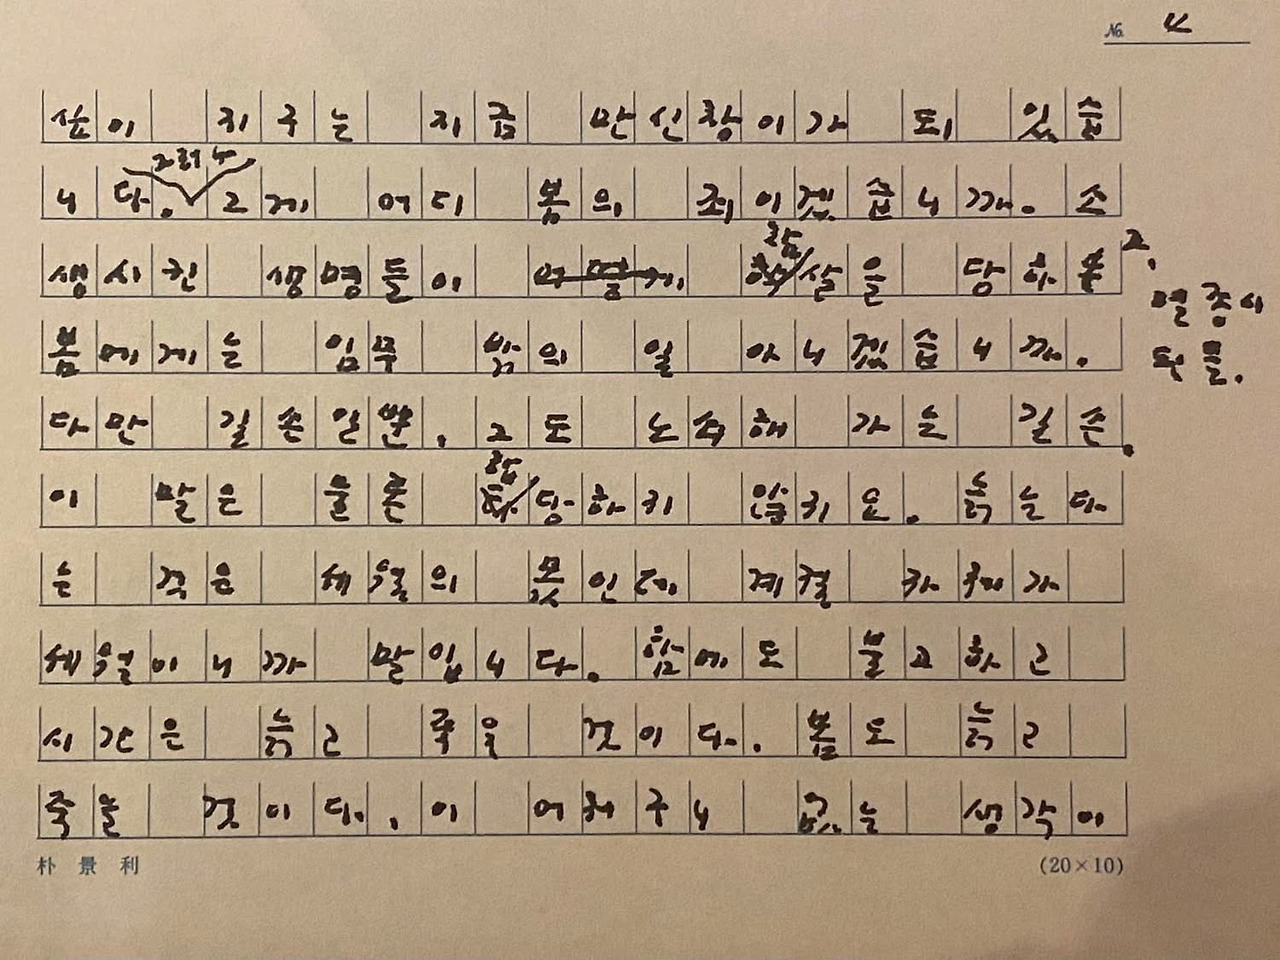 No. 4
싶이 지구는 지금 만신창이가 되 있습
그러나
니다. 그게 어디 봄의 죄이겠습니까. 소
참
생시킨 생명들이 살을 당하
봄에게는 임무 밖의 일 아니겠습니까.
다만 길손일뿐, 그도 노쇠해 가는 길손.
합
이 말은 물론 당하지 않지요. 늙는다
는 것은 세월의 몫인데 계절 자체가
세월이니까 말입니다. 함에도 불고하고
시간은 늙고 죽을 것이다. 봄도 늙고
죽을 것이다, 이 어처구니 없는 생각이
朴景利
(20×10)